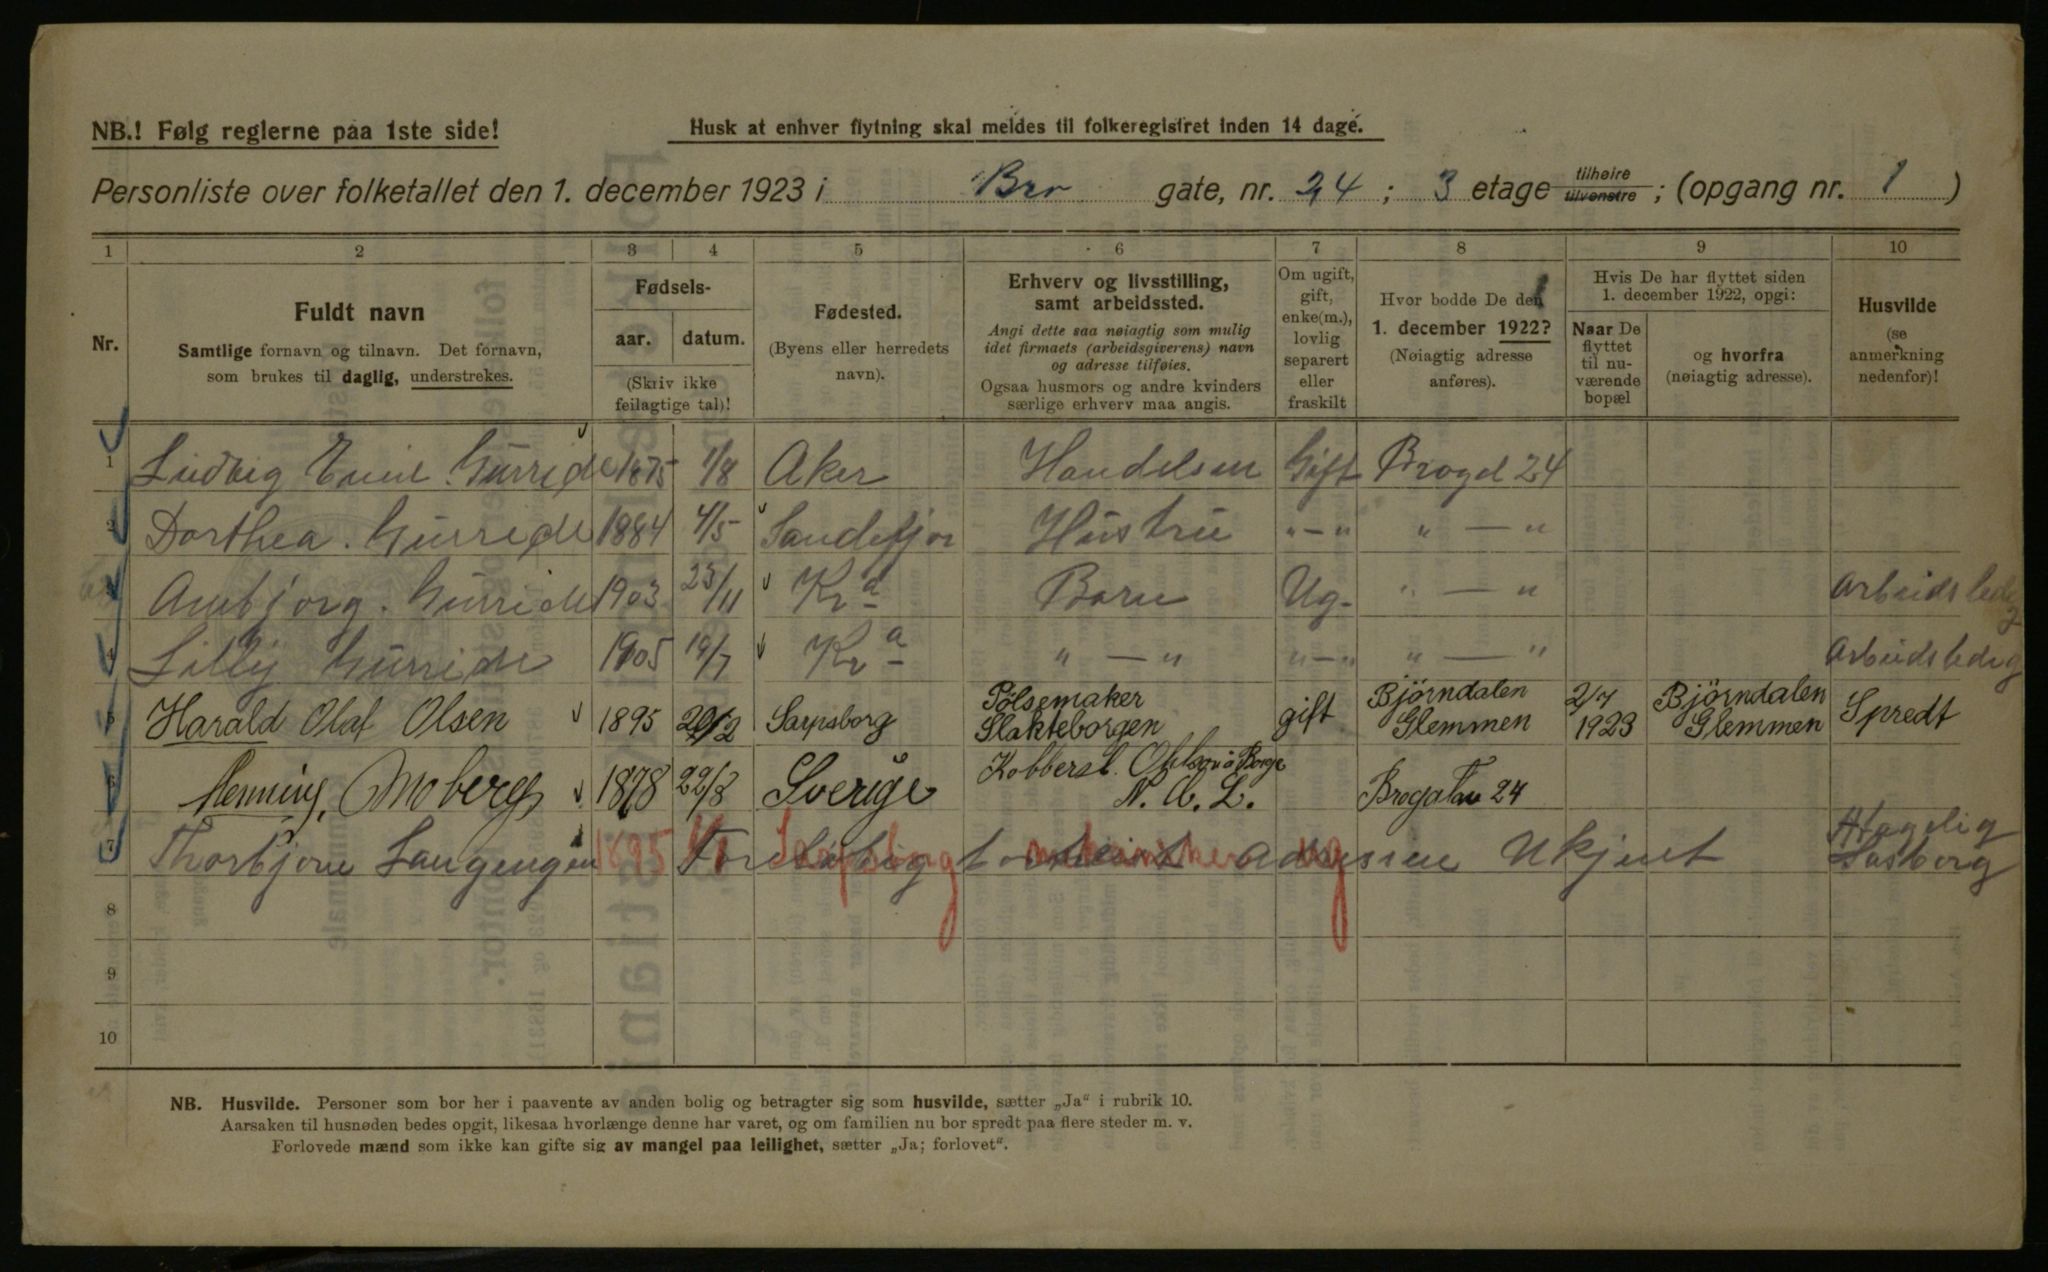 NB.! Følg reglerne paa 1ste side!
Husk at enhver flytning skal meldes til folkeregistret inden 14 dage.
Personliste over folketallet den 1. december 1923 i Bro gate, nr. 24 ; 3 etage tilhøire tilvenstre ; (opgang nr. 1 )
1 2 3 4 5 6 7 8 9 10
Nr.
Fuldt navn
Samtlige fornavn og tilnavn. Det fornavn,
som brukes til daglig, understrekes.
Fødsels-
aar. datum.
(Skriv ikke
feilagtige tal)!
Fødested.
(Byens eller herredets
navn).
Erhverv og livsstilling,
samt arbeidssted.
Angi dette saa nøiagtig som mulig
idet firmaets (arbeidsgiverens) navn
og adresse tilføies.
Ogsaa husmors og andre kvinders
særlige erhverv maa angis.
Om ugift,
gift,
enke(m.),
lovlig
separert
eller
fraskilt
Hvor bodde De den
1. december 1922?
(Nøiagtig adresse
anføres).
Hvis De har flyttet siden
1. december 1922, opgi:
Naar De
flyttet
til nu-
værende
bopæl
og hvorfra
(nøiagtig adresse).
Husvilde
(se
anmerkning
nedenfor)!
1 Ludvig Emil Gurride 1875 1/8 Aker Handelsm Gift Brogd 24
2 Dorthea Gurride 1884 4/5 Sandefjor Hustru " — " " — "
3 Ambjorg Gurride 1903 23/11 Kra Barn Ug. " — " Arbeidsledig
4 Lilly Gurride 1905 19/7 Kra " — " " — " " — " Arbeidsledig
5 Harald Olaf Olsen 1895 Sarpsborg Pølsemaker Slakteborgen gift Bjørndalen Glemmen 2/7 1923 Bjørndalen Glemmen Spredt
6 Henning Moberg 1878 22/3 Sverige Kobbersl. N. A. L. Brogatan 24
7 Thorbjorn Langengen 1895 Sarpsborg ug Adressen Ukjent
8
9
10
NB. Husvilde. Personer som bor her i paavente av anden bolig og betragter sig som husvilde, sætter „Ja“ i rubrik 10.
Aarsaken til husnøden bedes opgit, likesaa hvorlænge denne har varet, og om familien nu bor spredt paa flere steder m. v.
Forlovede mænd som ikke kan gifte sig av mangel paa leilighet, sætter „Ja; forlovet“.